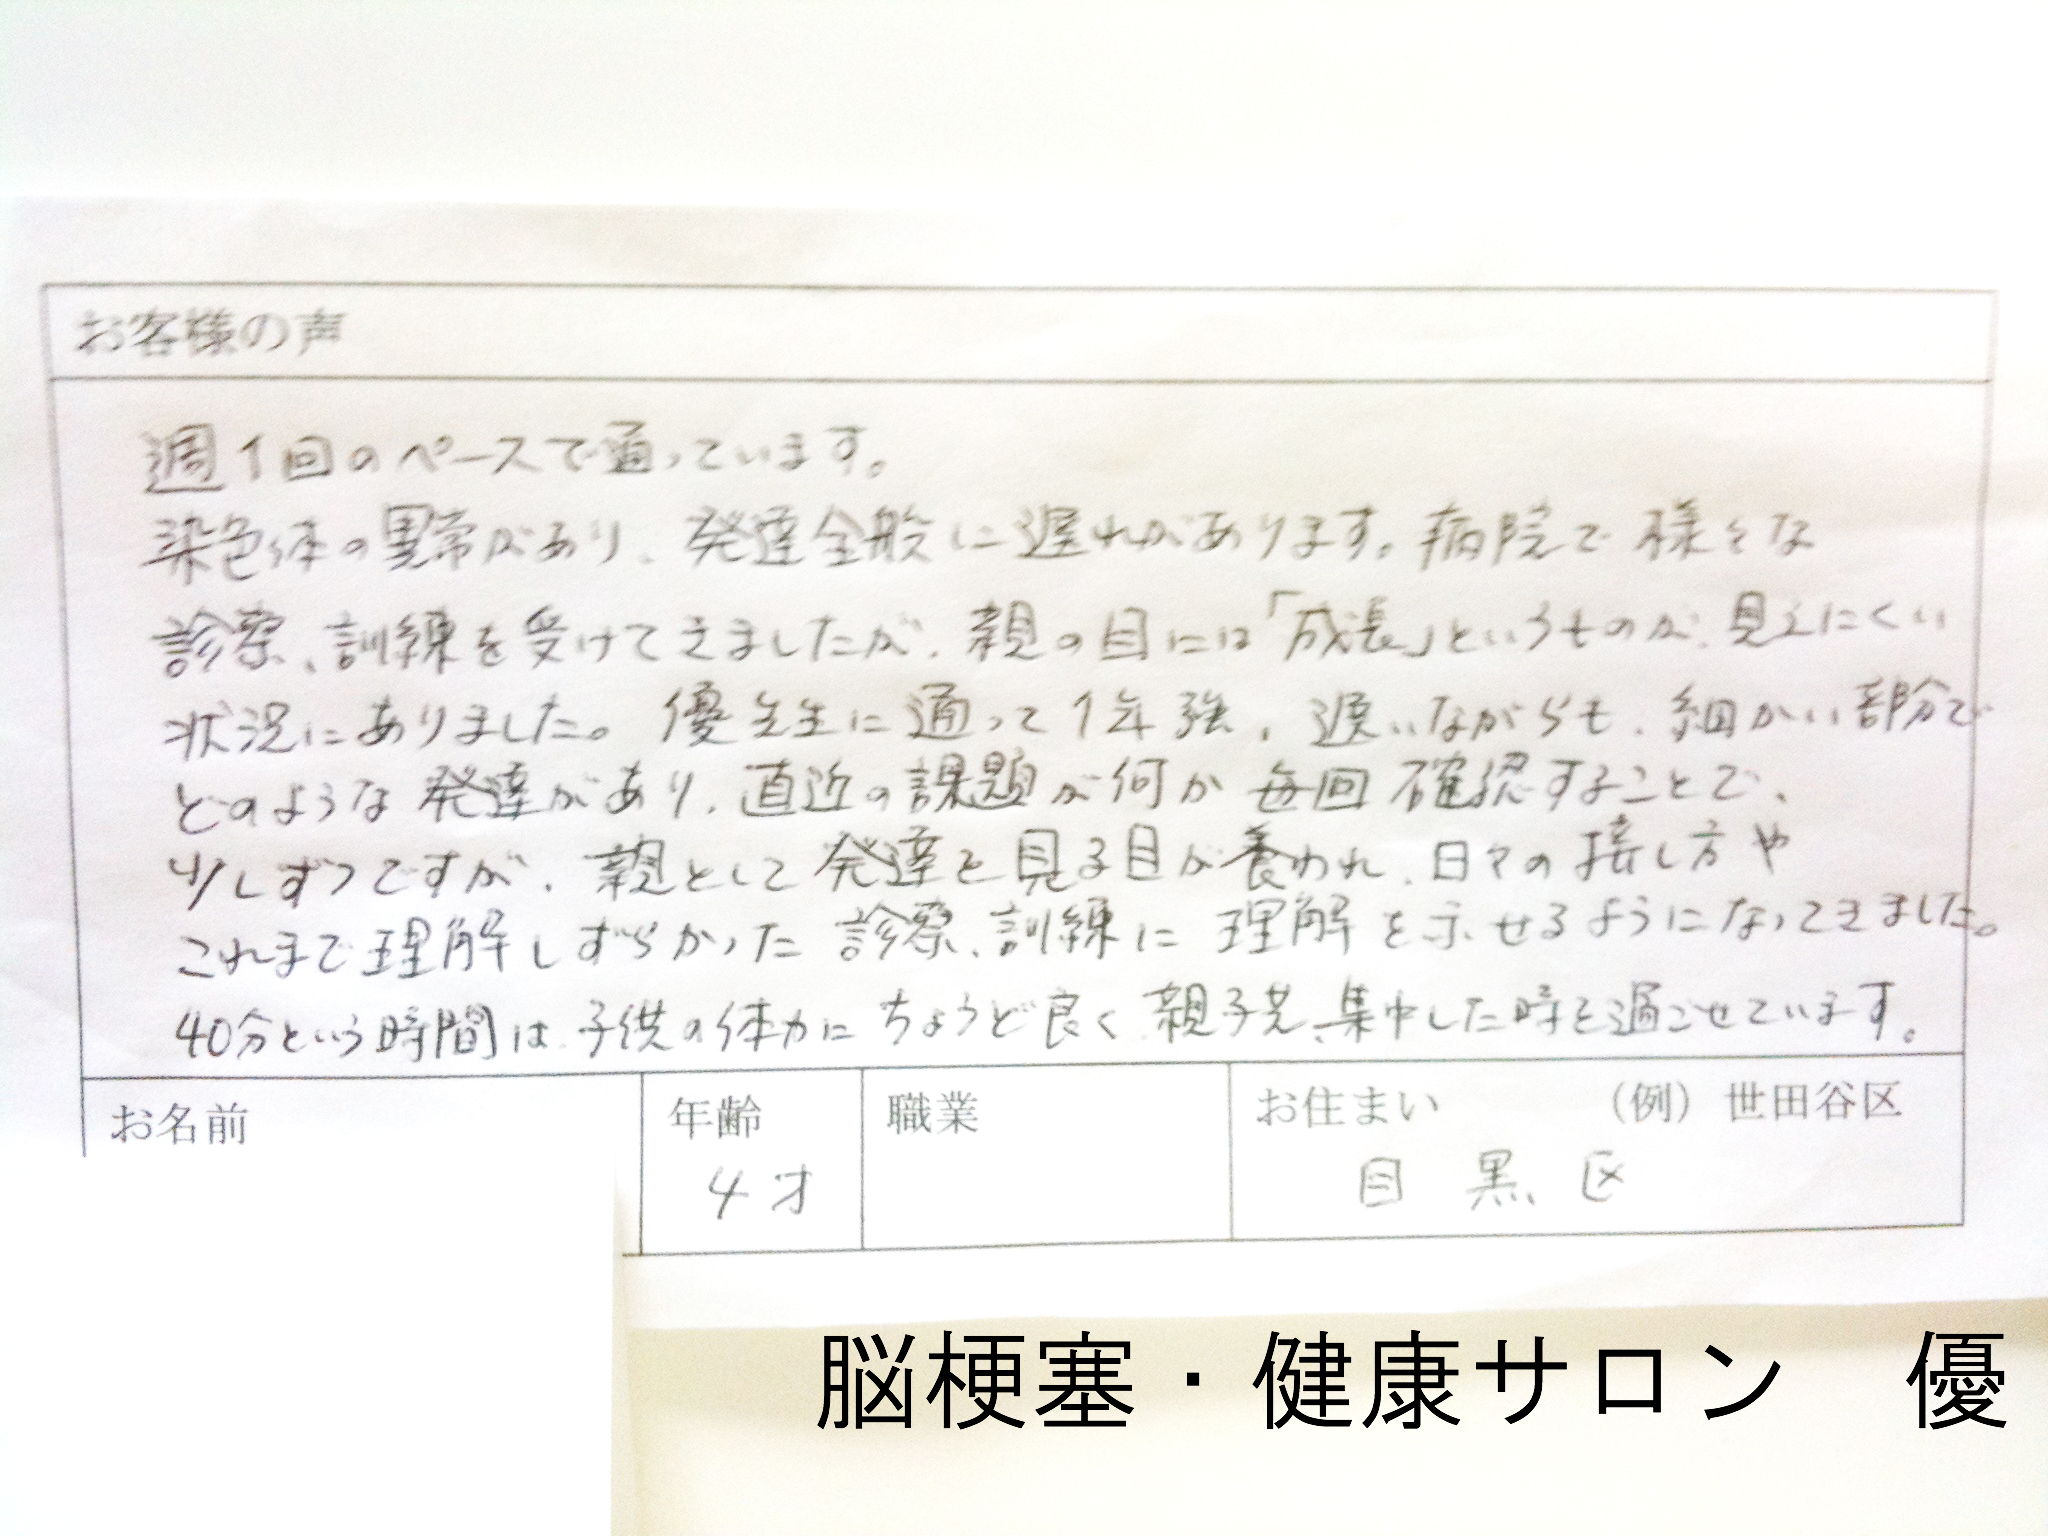 お客様の声
週1回のペースで通っています。
染色体の異常があり、発達全般に遅れがあります。病院で様々な
診察、訓練を受けてきましたが、親の目には「成長」というものが、見えにくい
状況にありました。優先生に通って1年強、遅いながらも、細かい部分で
どのような発達があり、直近の課題が何か毎回確認することで、
少しずつですが、親として発達を見る目が養われ、日々の接し方や
これまで理解しずらかった診察、訓練に理解を示せるようになってきました。
40分という時間は、子供の体力にちょうど良く、親子共、集中した時を過ごせています。
お名前 年齢 職業 お住まい （例）世田谷区
4才 目黒区
脳梗塞・健康サロン 優